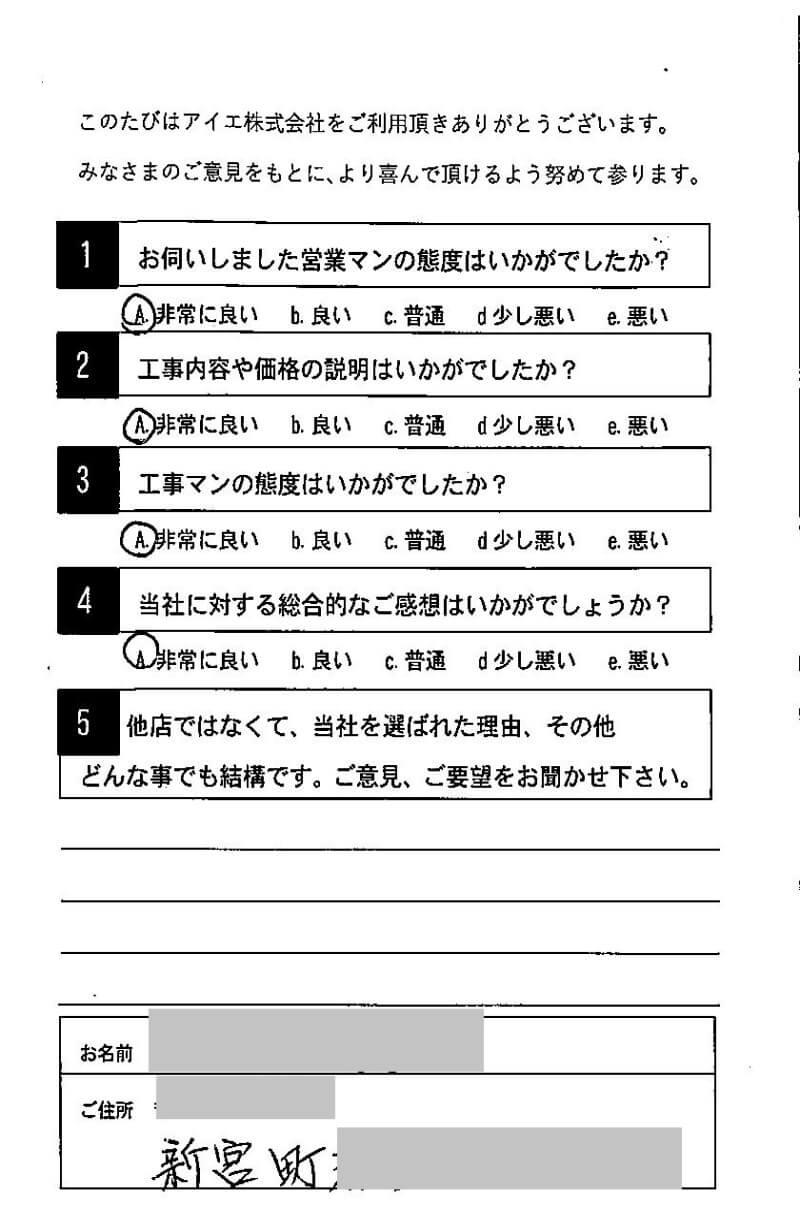 このたびはアイエ株式会社をご利用頂きありがとうございます。
みなさまのご意見をもとに、より喜んで頂けるよう努めて参ります。
1 お伺いしました営業マンの態度はいかがでしたか?
A. 非常に良い b. 良い c. 普通 d 少し悪い e. 悪い
2 工事内容や価格の説明はいかがでしたか?
A. 非常に良い b. 良い c. 普通 d 少し悪い e. 悪い
3 工事マンの態度はいかがでしたか?
A. 非常に良い b. 良い c. 普通 d 少し悪い e. 悪い
4 当社に対する総合的なご感想はいかがでしょうか?
A. 非常に良い b. 良い c. 普通 d 少し悪い e. 悪い
5 他店ではなくて、当社を選ばれた理由、その他
どんな事でも結構です。ご意見、ご要望をお聞かせ下さい。
お名前
ご住所
新宮町